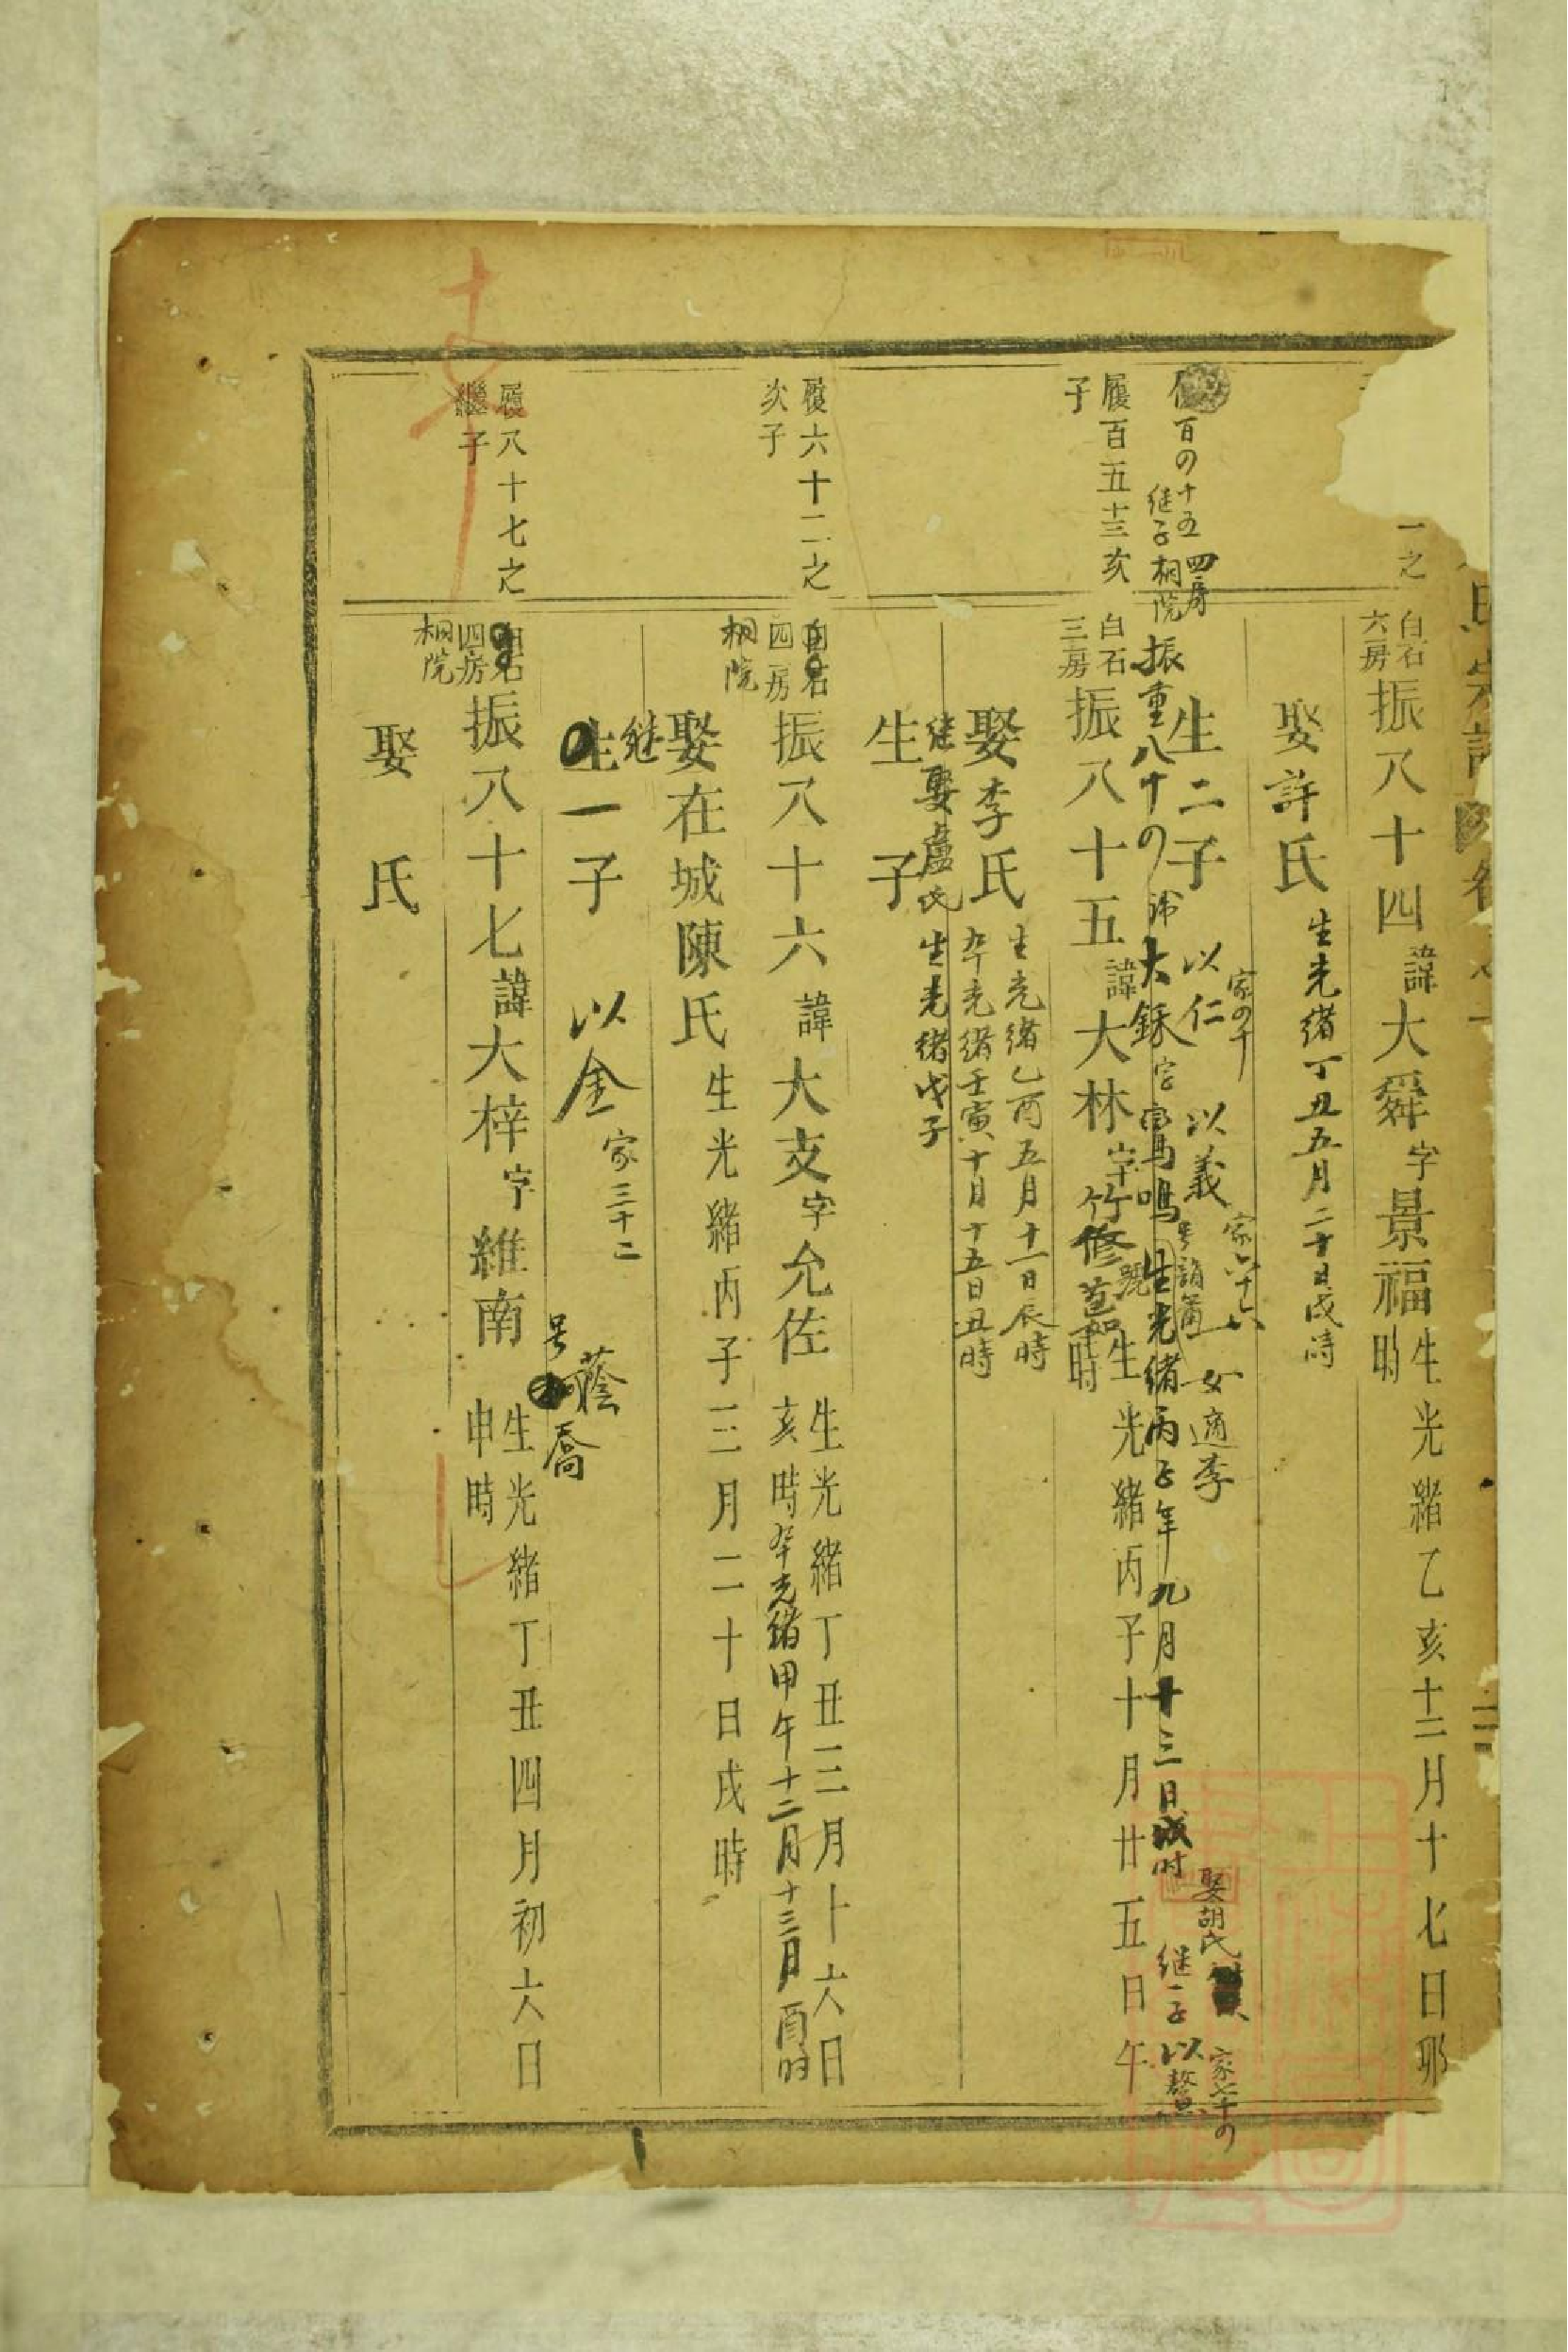 一之
白石
六房
振八十四諱大舜字景福生光緒乙亥十二月十七日卯
時
娶許氏生光緒丁丑五月二十日戌時
生二子以仁家〇十以義家六十六一女適李
百〇十五四房
继子桐院
振重八十〇諱大銶字寯鳴生光緒丙子年九月十三日戌时
娶胡氏
继一子以 家七十〇
履百五十三次
子
白石
三房
振八十五諱大林字竹修號 生光緒丙子十月廿五日午
時
娶李氏生光緒乙酉五月十一日辰時
卒光緒壬寅十月十五日丑時
继娶盧氏生光緒戊子
生子
履六十二之
次子
白石
四房
桐院
振八十六諱大支字允佐生光緒丁丑三月十六日
亥時卒光緒甲午十二月十三日酉时
娶在城陳氏生光緒丙子三月二十日戌時
继
生一子以金家三十二
号蔭喬
履八十七之
繼子
白石
四房
桐院
振八十七諱大梓字維南生光緒丁丑四月初六日
申時
娶氏